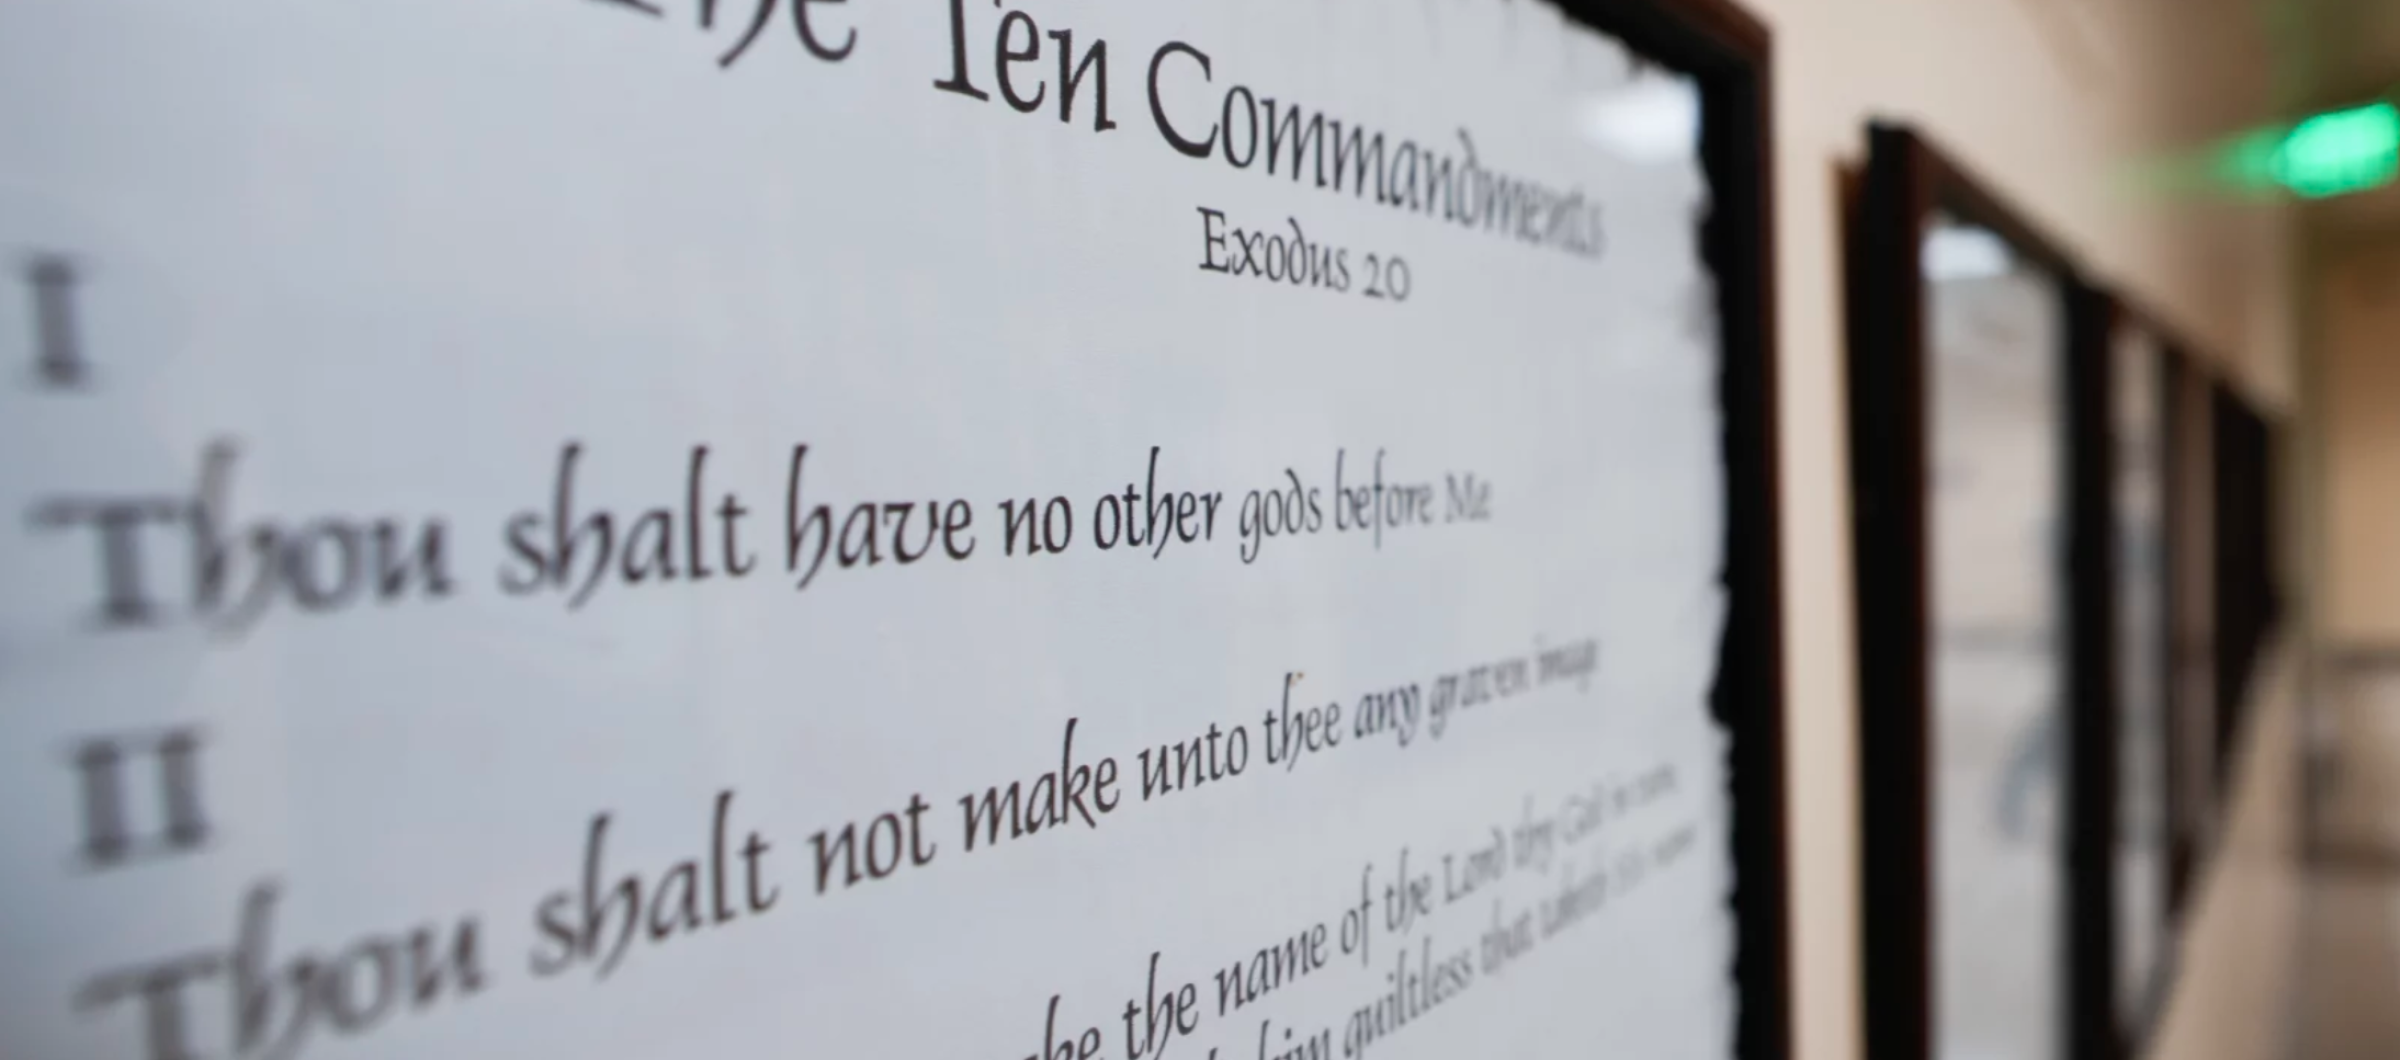 The Ten Commandments
Exodus 20
I
Thou shalt have no other gods before Me
II
Thou shalt not make unto thee any graven image
the name of the Lord thy God in vain,
him guiltless that taketh His name